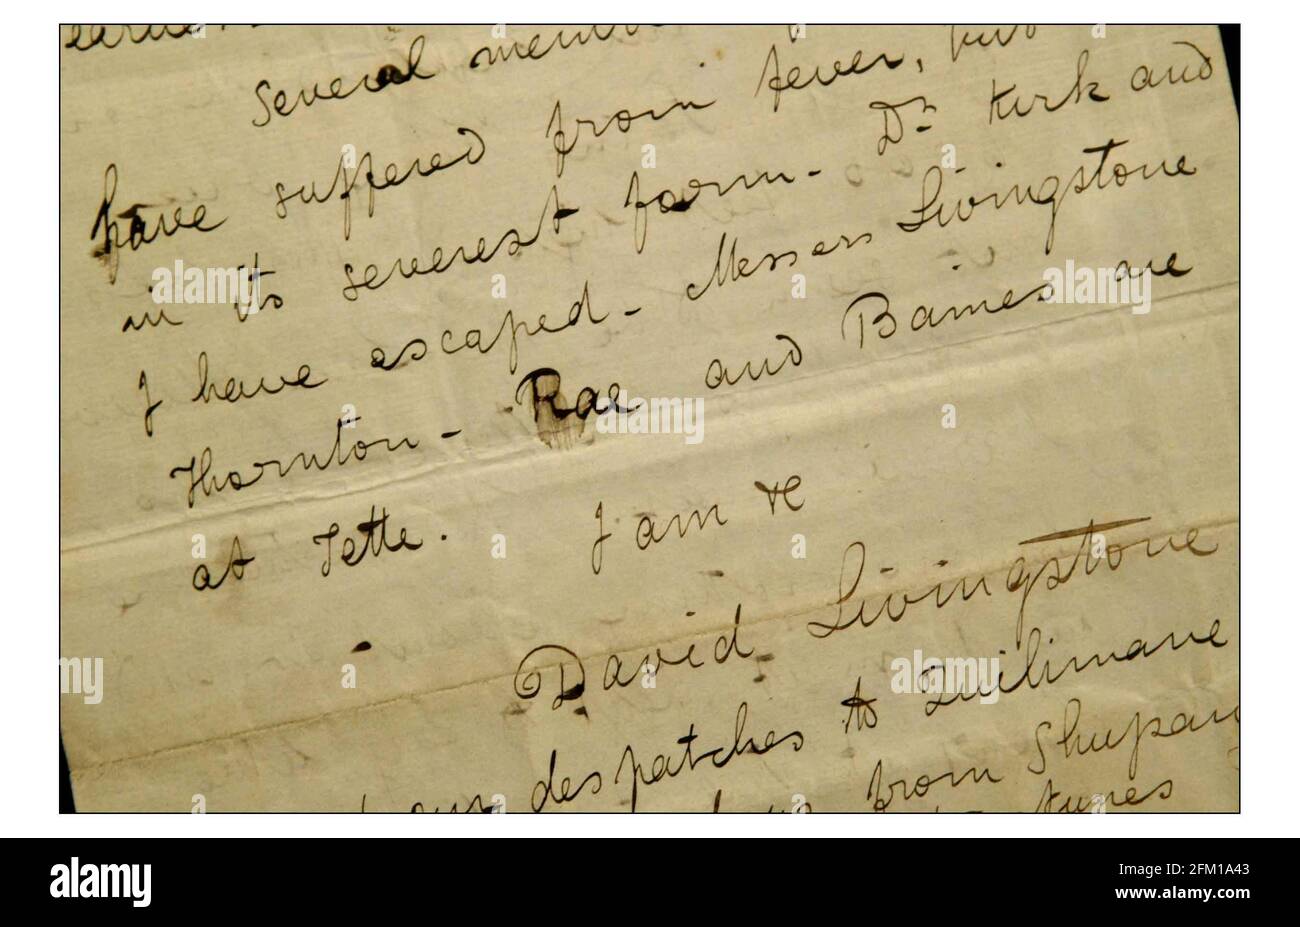 Several
have suffered from fever, but
in its severest form. Dr Kirk and
I have escaped - Messrs Livingstone
Thornton - Rae and Baines are
at Tette. I am &c
David Livingstone
our despatches to Quilimane
from Shupan
alamy
Image ID: 2FM1A43
www.alamy.com